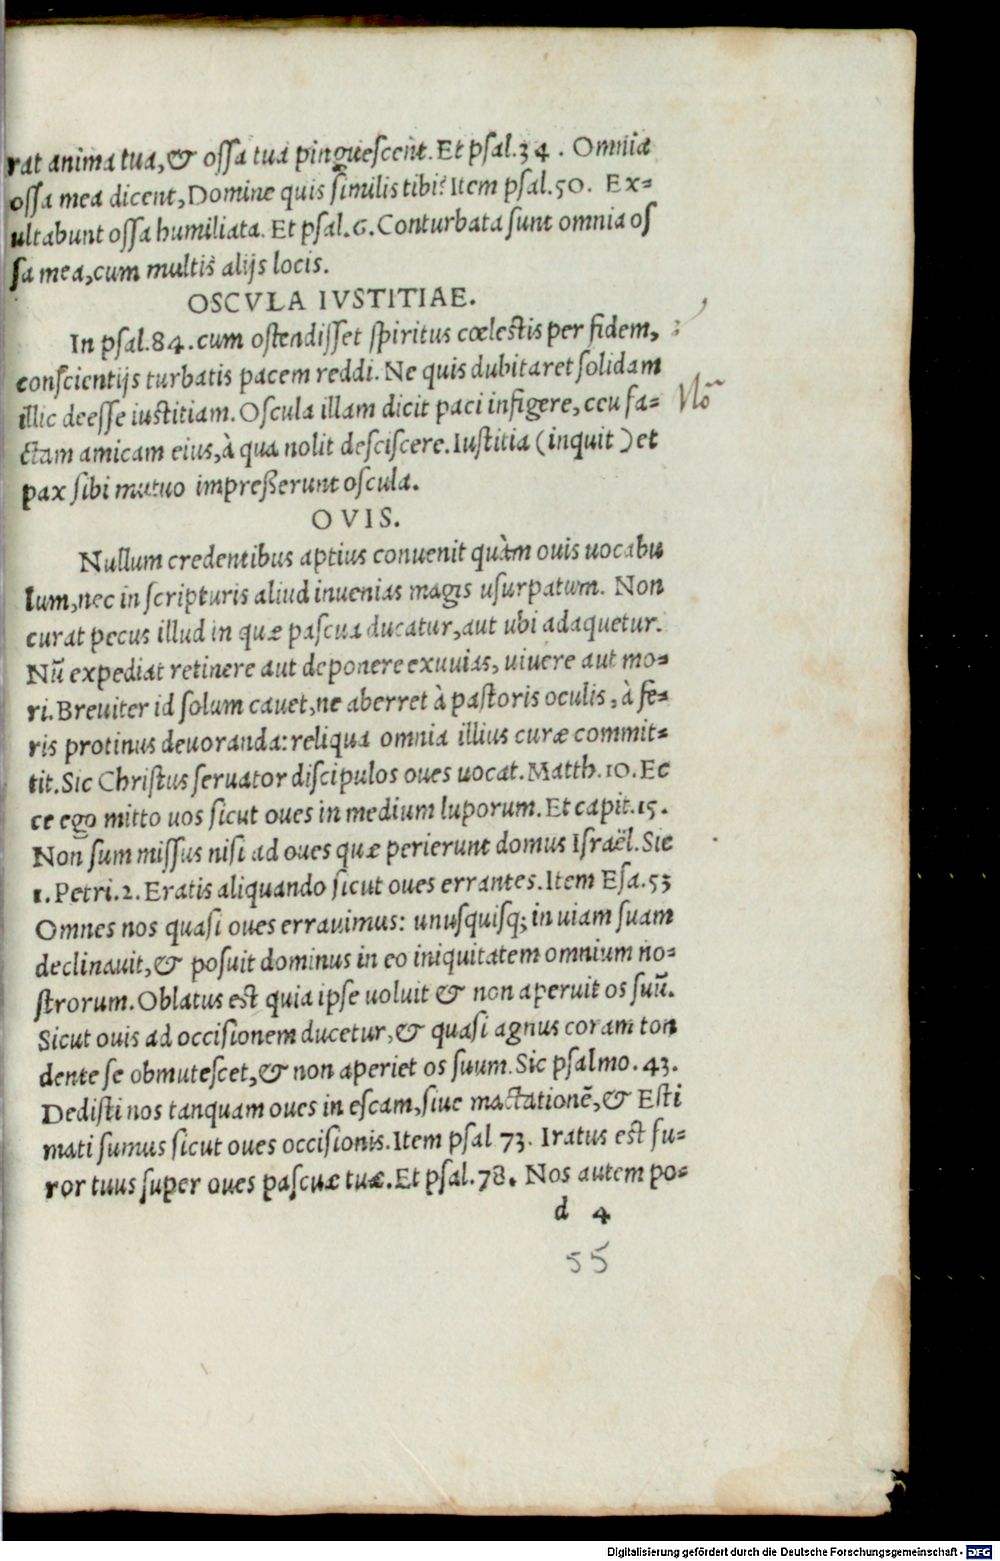 rat anima tua, & ossa tua pinguescent. Et psal. 34. Omnia
ossa mea dicent, Domine quis similis tibi? Item psal. 50. Ex-
ultabunt ossa humiliata. Et psal. 6. Conturbata sunt omnia os
sa mea, cum multis alijs locis.
OSCVLA IVSTITIAE.
In psal. 84. cum ostendisset spiritus cœlestis per fidem,
conscientijs turbatis pacem reddi. Ne quis dubitaret solidam
illic deesse iustitiam. Oscula illam dicit paci infigere, ceu fa-
ctam amicam eius, à qua nolit desciscere. Iustitia (inquit) et
pax sibi mutuo impreßerunt oscula.
OVIS.
Nullum credentibus aptius conuenit quàm ouis uocabu
lum, nec in scripturis aliud inuenias magis usurpatum. Non
curat pecus illud in quæ pascua ducatur, aut ubi adaquetur.
Nũ expediat retinere aut deponere exuuias, uiuere aut mo-
ri. Breuiter id solum cauet, ne aberret à pastoris oculis, à fe-
ris protinus deuoranda: reliqua omnia illius curæ commit-
tit. Sic Christus seruator discipulos oues uocat. Matth. 10. Ec
ce ego mitto uos sicut oues in medium luporum. Et capit. 15.
Non sum missus nisi ad oues quæ perierunt domus Israël. Sic
1. Petri. 2. Eratis aliquando sicut oues errantes. Item Esa. 53
Omnes nos quasi oues errauimus: unusquisq; in uiam suam
declinauit, & posuit dominus in eo iniquitatem omnium no-
strorum. Oblatus est quia ipse uoluit & non aperuit os suũ.
Sicut ouis ad occisionem ducetur, & quasi agnus coram ton
dente se obmutescet, & non aperiet os suum. Sic psalmo. 43.
Dedisti nos tanquam oues in escam, siue mactationẽ, & Esti
mati sumus sicut oues occisionis. Item psal 73. Iratus est fu-
ror tuus super oues pascuæ tuæ. Et psal. 78. Nos autem po-
d 4
55
Digitalisierung gefördert durch die Deutsche Forschungsgemeinschaft - DFG